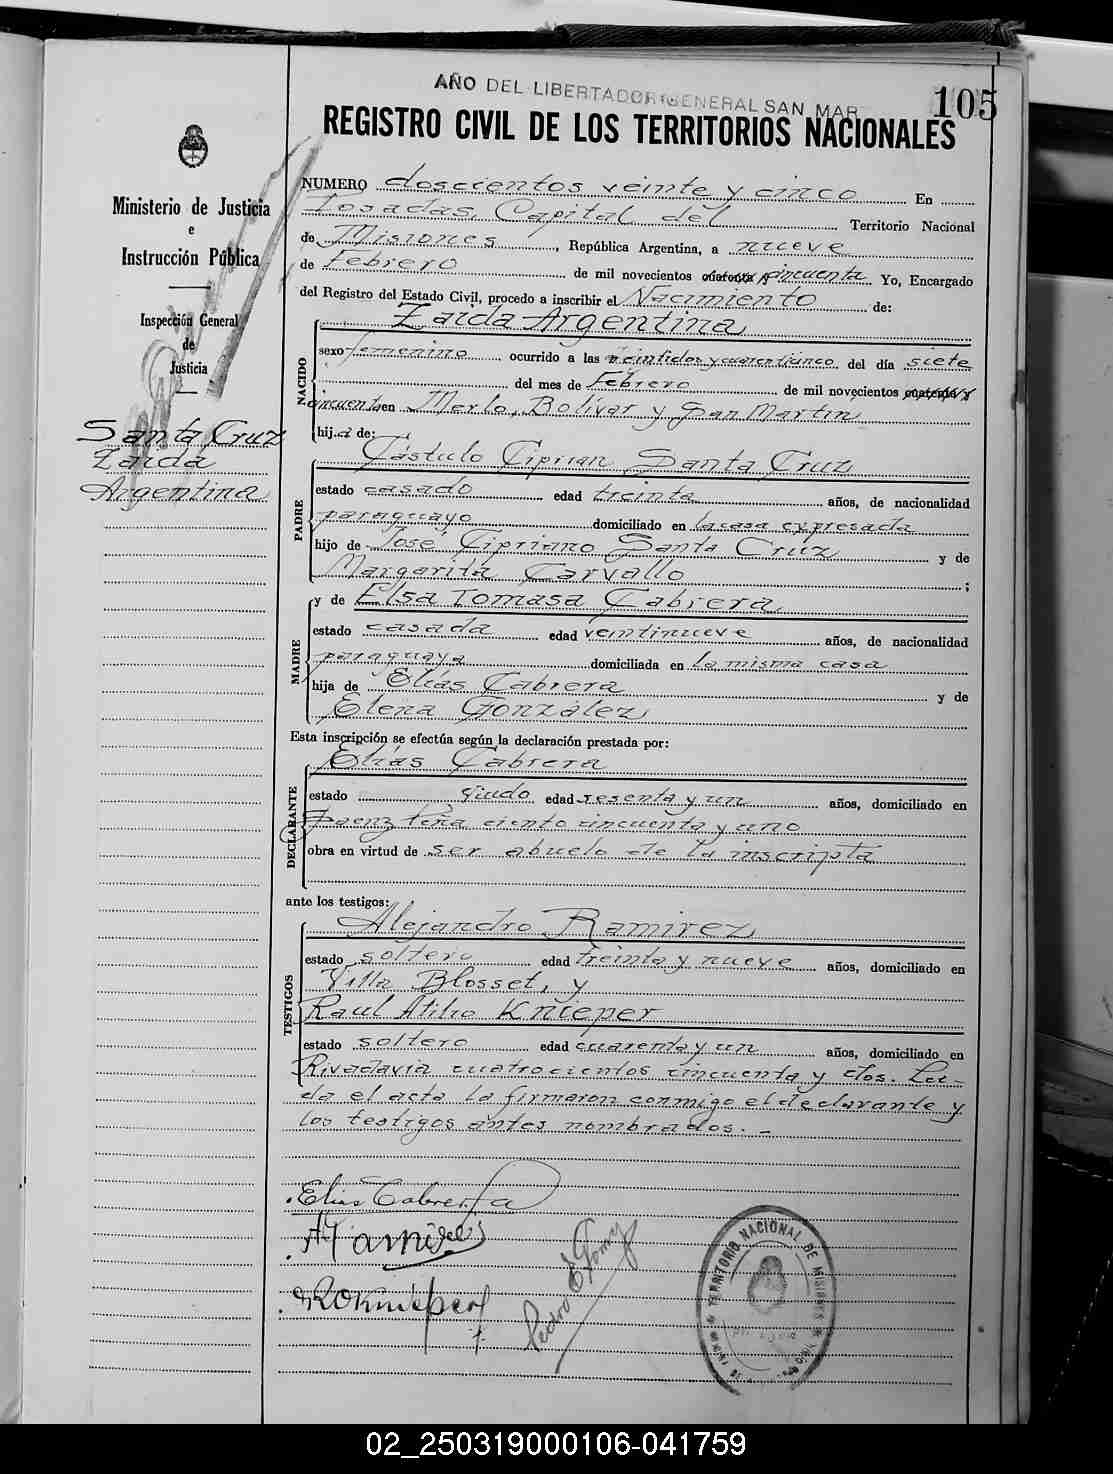 AÑO DEL LIBERTADOR GENERAL SAN MAR
105
REGISTRO CIVIL DE LOS TERRITORIOS NACIONALES
Ministerio de Justicia
e
Instrucción Pública
Inspección General
de
Justicia
Santa Cruz
Zaida
Argentina
NUMERO doscientos veinte y cinco En
Posadas, Capital del Territorio Nacional
de Misiones, República Argentina, a nueve
de Febrero de mil novecientos cuarenta y cincuenta Yo, Encargado
del Registro del Estado Civil, procedo a inscribir el Nacimiento de:
Zaida Argentina
NACIDO
sexo femenino ocurrido a las veintidos y cuarenticinco del día siete
del mes de Febrero de mil novecientos cuarenta y
cincuenta en Merlo, Bolívar y San Martín
hij a de:
Cástulo Ciprian Santa Cruz
PADRE
estado casado edad treinta años, de nacionalidad
paraguayo domiciliado en la casa expresada
hijo de José Cipriano Santa Cruz y de
Margarita Carvallo ;
y de Elsa Tomasa Cabrera
MADRE
estado casada edad veintinueve años, de nacionalidad
paraguaya domiciliada en la misma casa
hija de Elías Cabrera y de
Elena González
Esta inscripción se efectúa según la declaración prestada por:
Elías Cabrera
DECLARANTE
estado viudo edad sesenta y un años, domiciliado en
Saenz Peña ciento cincuenta y uno
obra en virtud de ser abuelo de la inscripta
ante los testigos:
Alejandro Ramirez
TESTIGOS
estado soltero edad treinta y nueve años, domiciliado en
Villa Blosset, y
Raul Atilio Knieper
estado soltero edad cuarenta y un años, domiciliado en
Rivadavia cuatrocientos cincuenta y dos. Lei-
da el acta la firmaron conmigo el declarante y
los testigos antes nombrados. -
Elias Cabrera
A Ramirez
Pedro E Gomez
TERRITORIO NACIONAL DE MISIONES
02_250319000106-041759